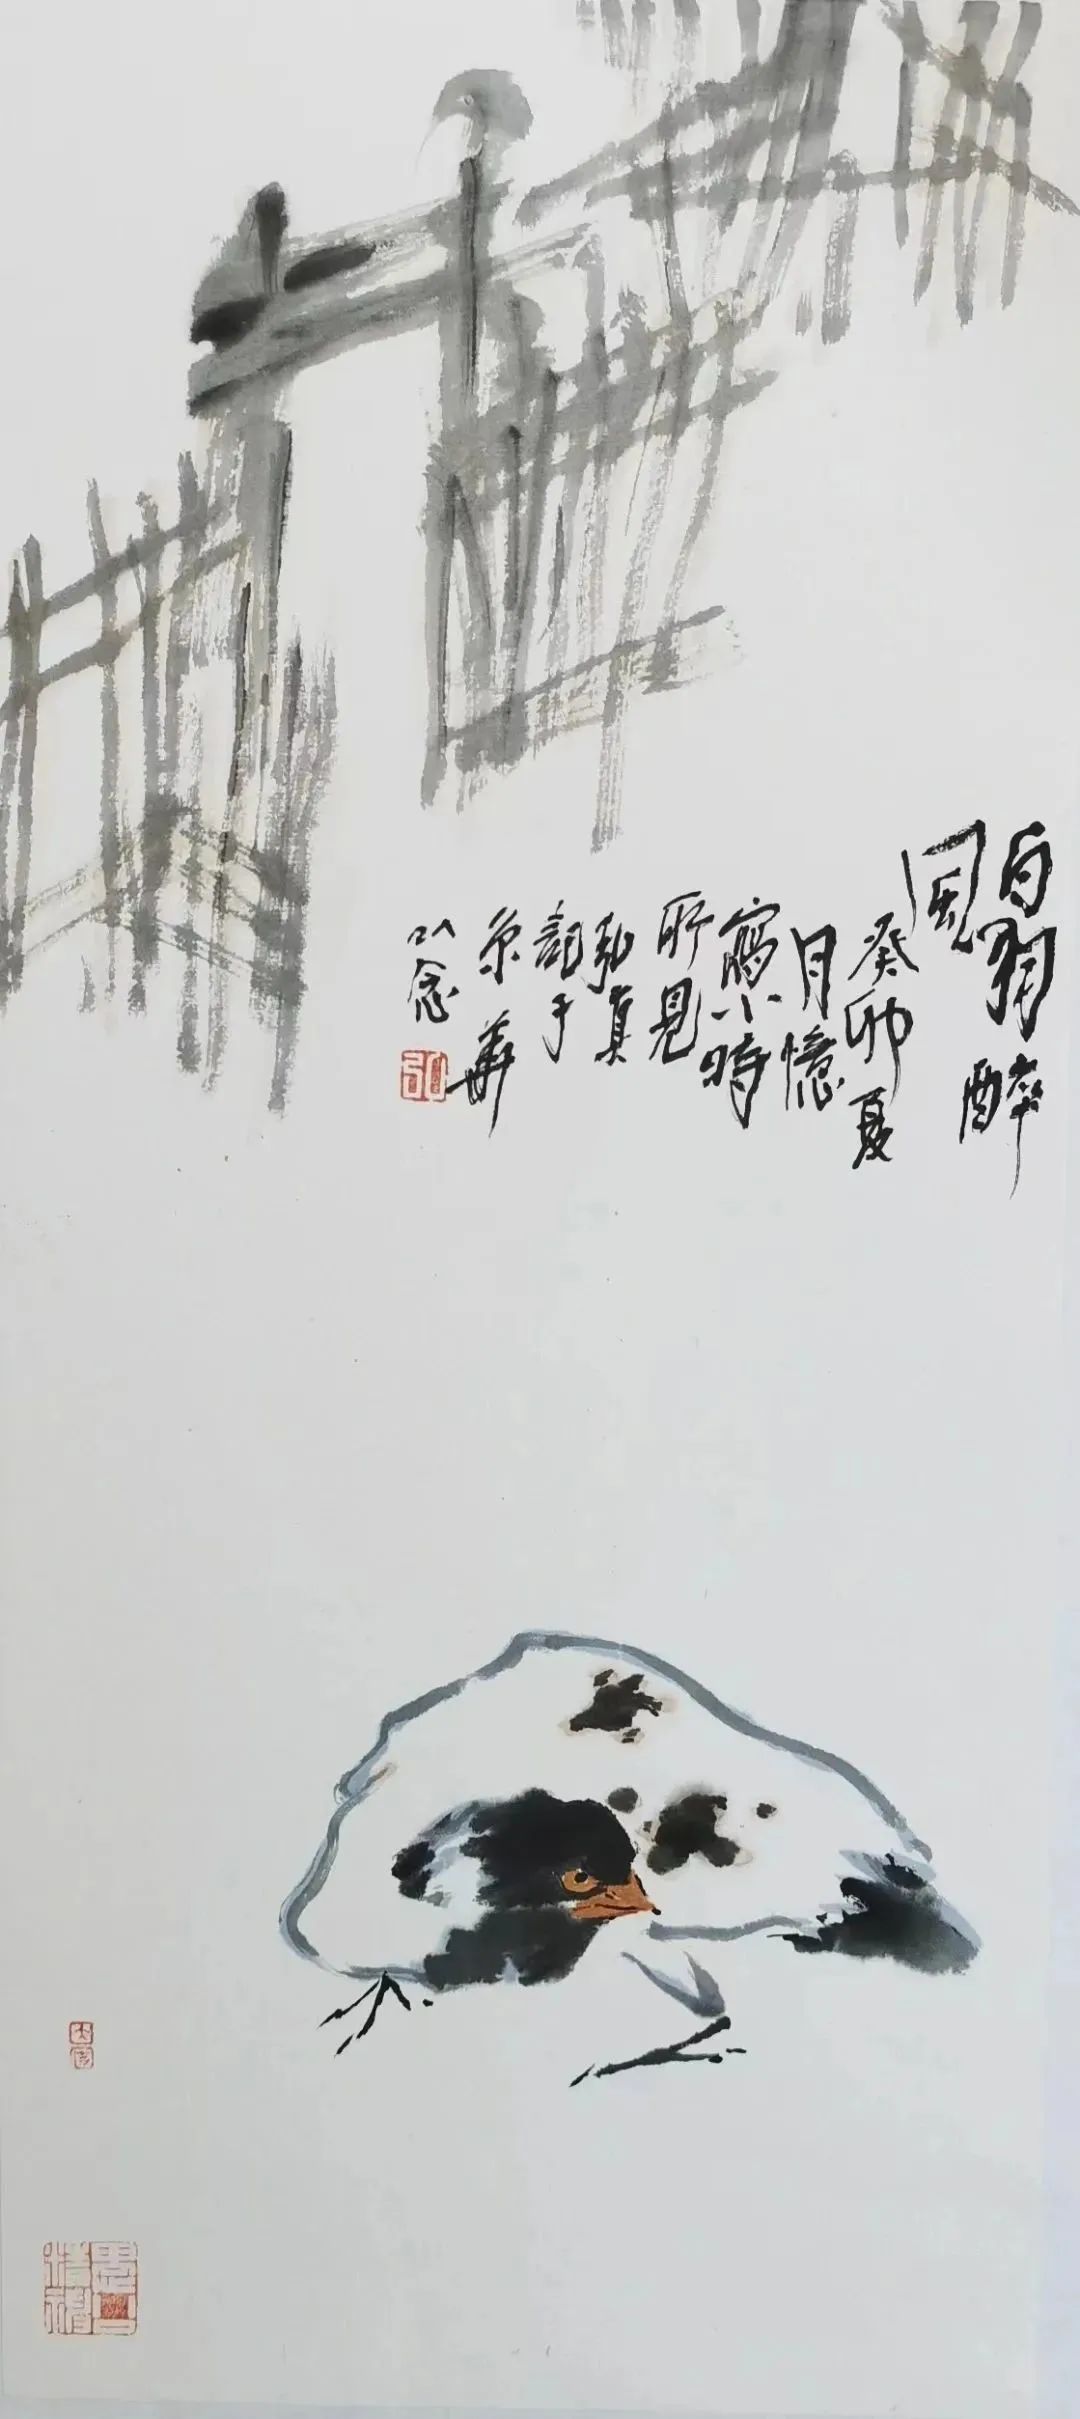 白羽醉
風
癸卯夏
月憶
寫小時
所見
弘真
記于
京華
以念
弘